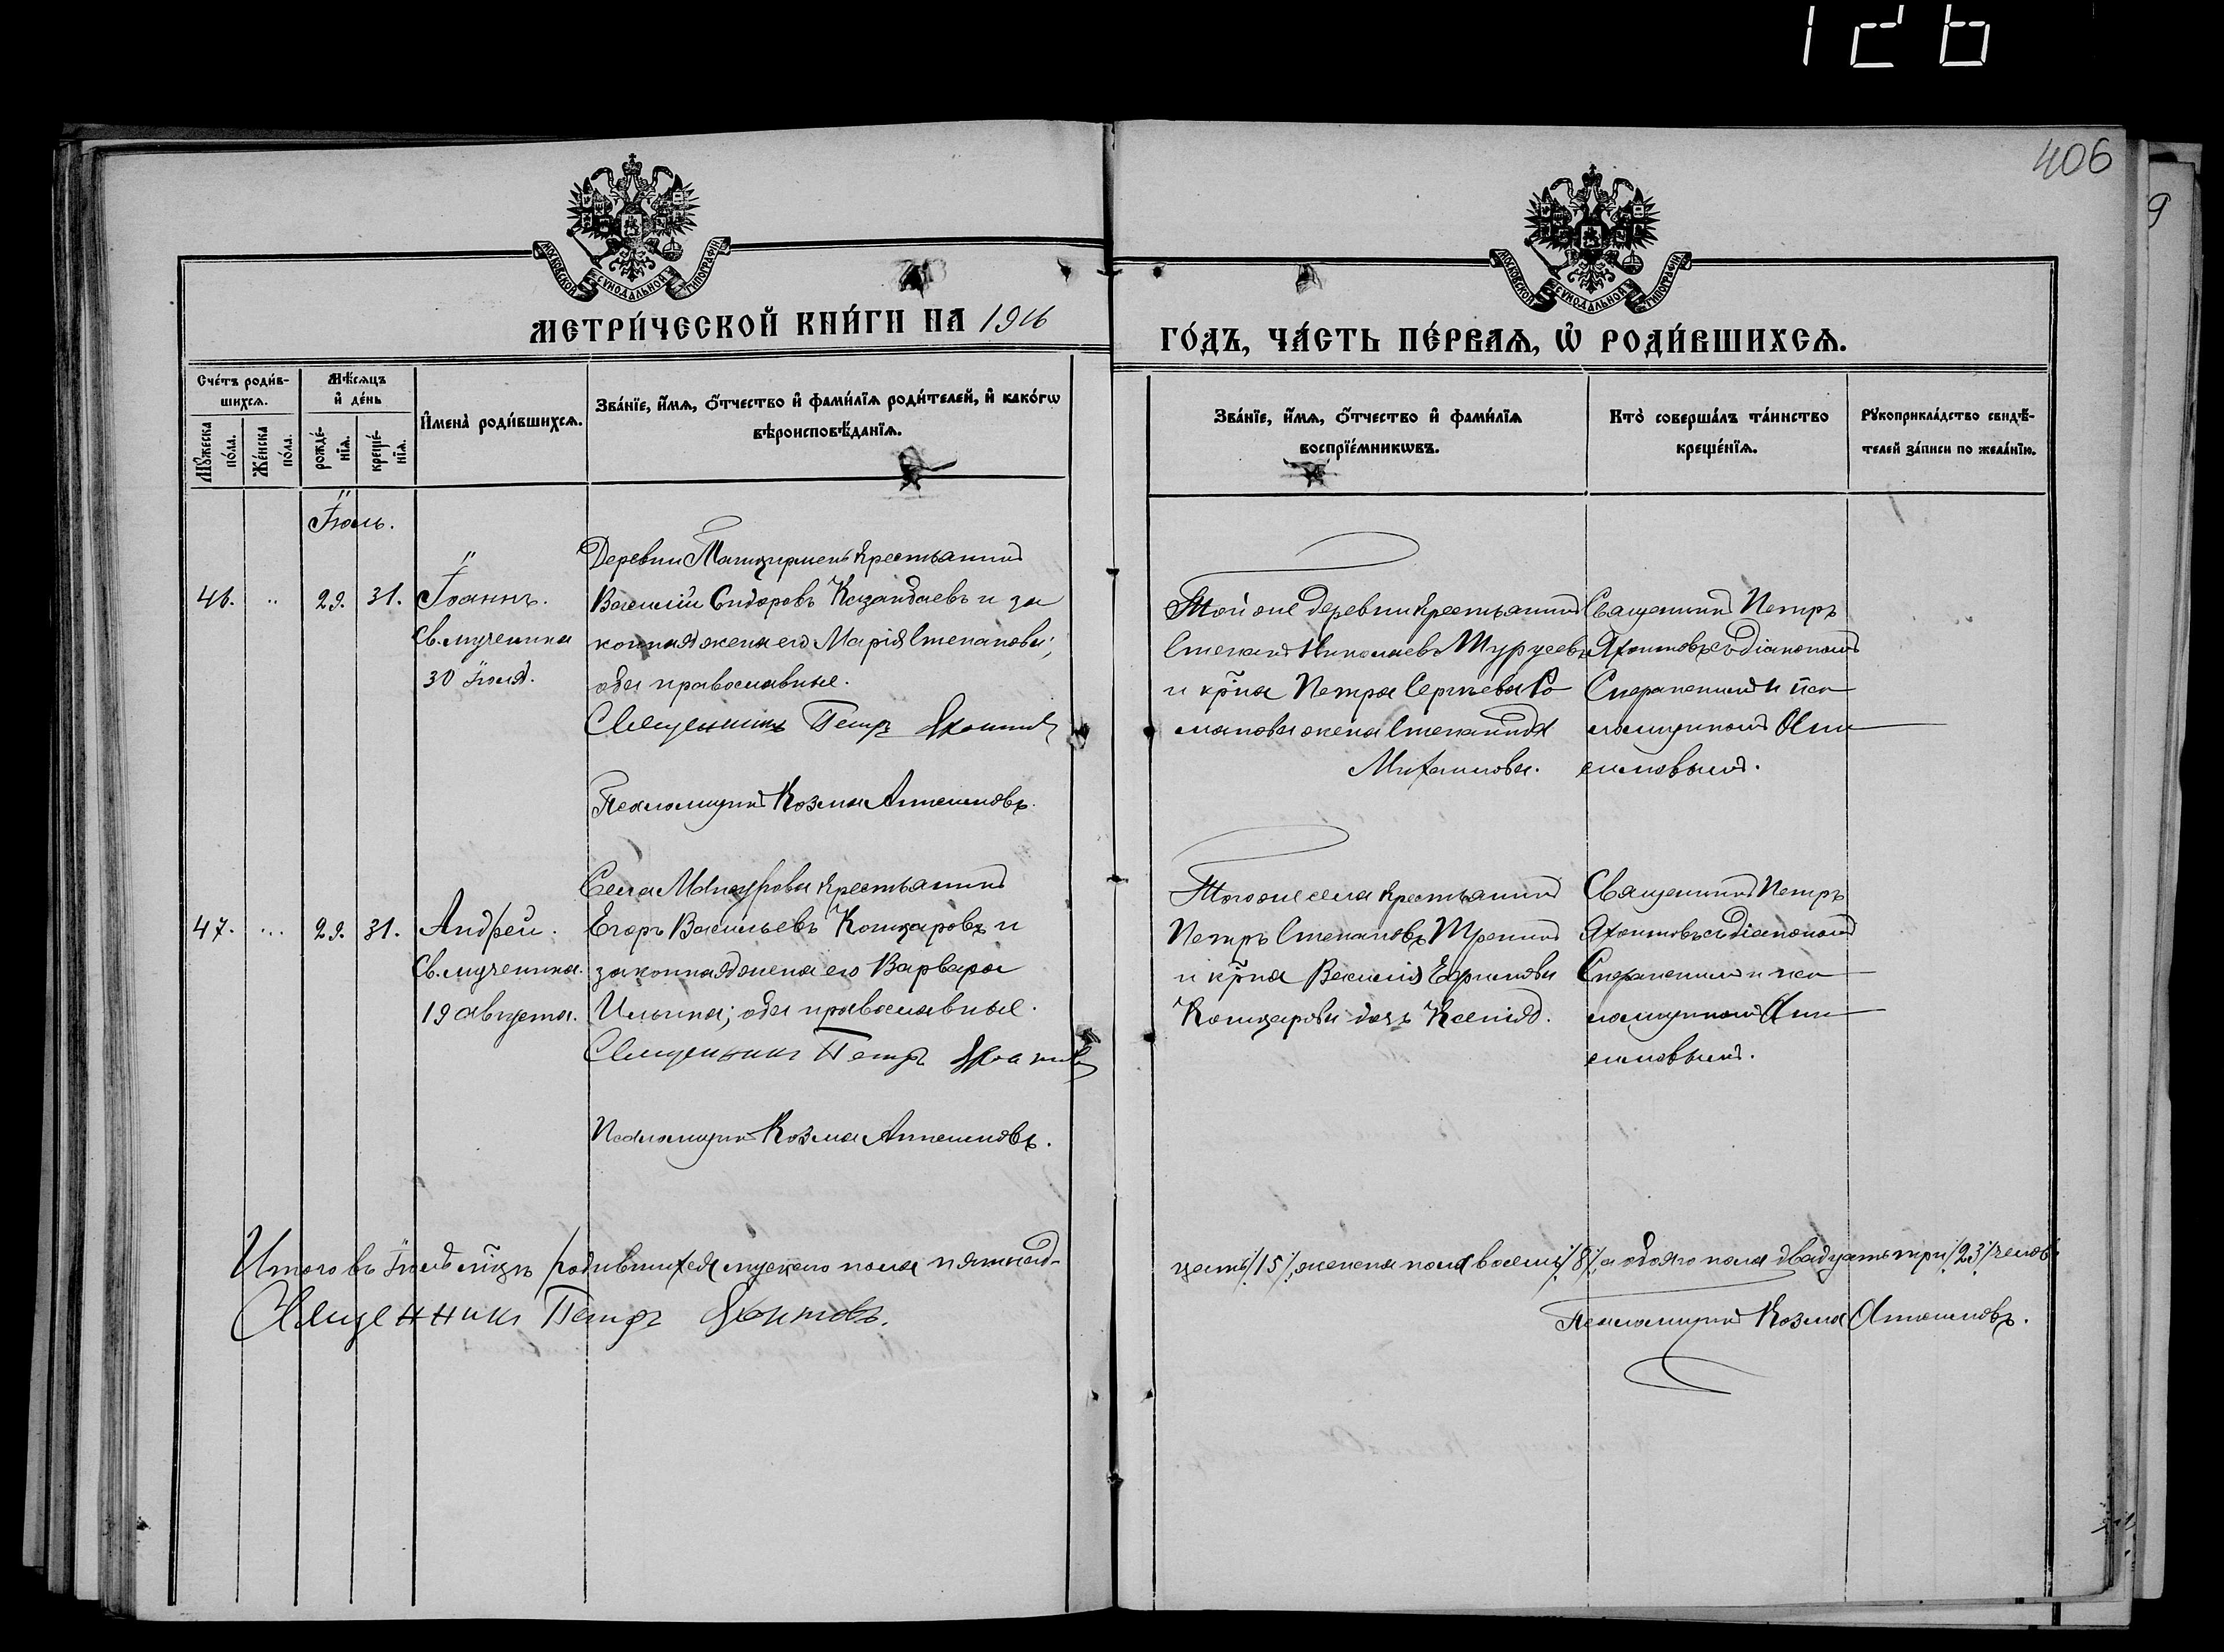 406
МОСКОВСКОЙ СѴНОДАЛЬНОЙ ТИПОГРАФІИ
МОСКОВСКОЙ СѴНОДАЛЬНОЙ ТИПОГРАФІИ
МЕТРИ́ЧЕСКОЙ КНИ́ГИ НА 1916
ГО́ДЪ, ЧА́СТЬ ПЕ́РВАѦ, Ѡ҆ РОДИ́ВШИХСѦ.
Сче́тъ роди́в-
шихсѧ.
Мꙋ́жеска
по́ла.
Же́нска
по́ла.
Мѣ́сѧцъ
и҆ де́нь
рожде́-
нїѧ.
креще́-
нїѧ.
И҆мена̀ роди́вшихсѧ.
Зва́нїе, и҆́мѧ, ѻ҆́тчество и҆ фами́лїѧ роди́телей, и҆ како́гѡ
вѣроисповѣ́данїѧ.
Зва́нїе, и҆́мѧ, ѻ҆́тчество и҆ фами́лїѧ
воспрїе́мникѡвъ.
Кто̀ соверша́лъ та́инство
креще́нїѧ.
Рꙋкоприкла́дство свидѣ́-
телей за́писи по жела́нїю.
Іюль.
46. „ 29. 31. Іоаннъ.
Св. мученика
30 іюля.
Деревни крестьянинъ
Василій Сидоровъ Казандаевъ и за
конная жена его Марія Степанова;
оба православные.
Священникъ Петръ Яхонтовъ
Псаломщикъ Козма Анисимовъ.
Той же деревни крестьянинъ
Степанъ Николаевъ Турусевъ
и кр-на Петра Сергѣева Ро-
манова жена Степанида
Михаилова.
Священникъ Петръ
Яхонтовъ съ діакономъ
Сперанскимъ и пса-
ломщикомъ Ани-
симовымъ.
47. ... 29. 31. Андрей.
Св. мученика.
19 августа.
Села крестьянинъ
Егоръ Васильевъ Кошкаровъ и
законная жена его Варвара
Ильина; оба православные.
Священникъ Петръ Яхонтовъ
Псаломщикъ Козма Анисимовъ.
Того же села крестьянинъ
Петръ Степановъ
и кр-на Василія
Кошкарова дочь Ксенія.
Священникъ Петръ
Яхонтовъ съ діакономъ
Сперанскимъ и пса-
ломщикомъ Ани-
симовымъ.
Итого въ Іюлѣ мѣцѣ родившихся мужеска пола пятнад-
цать /15/, женска пола восемь /8/, а обоего пола двадцать три /23/ челов.
Священникъ Петръ Яхонтовъ.
Псаломщикъ Козма Анисимовъ.